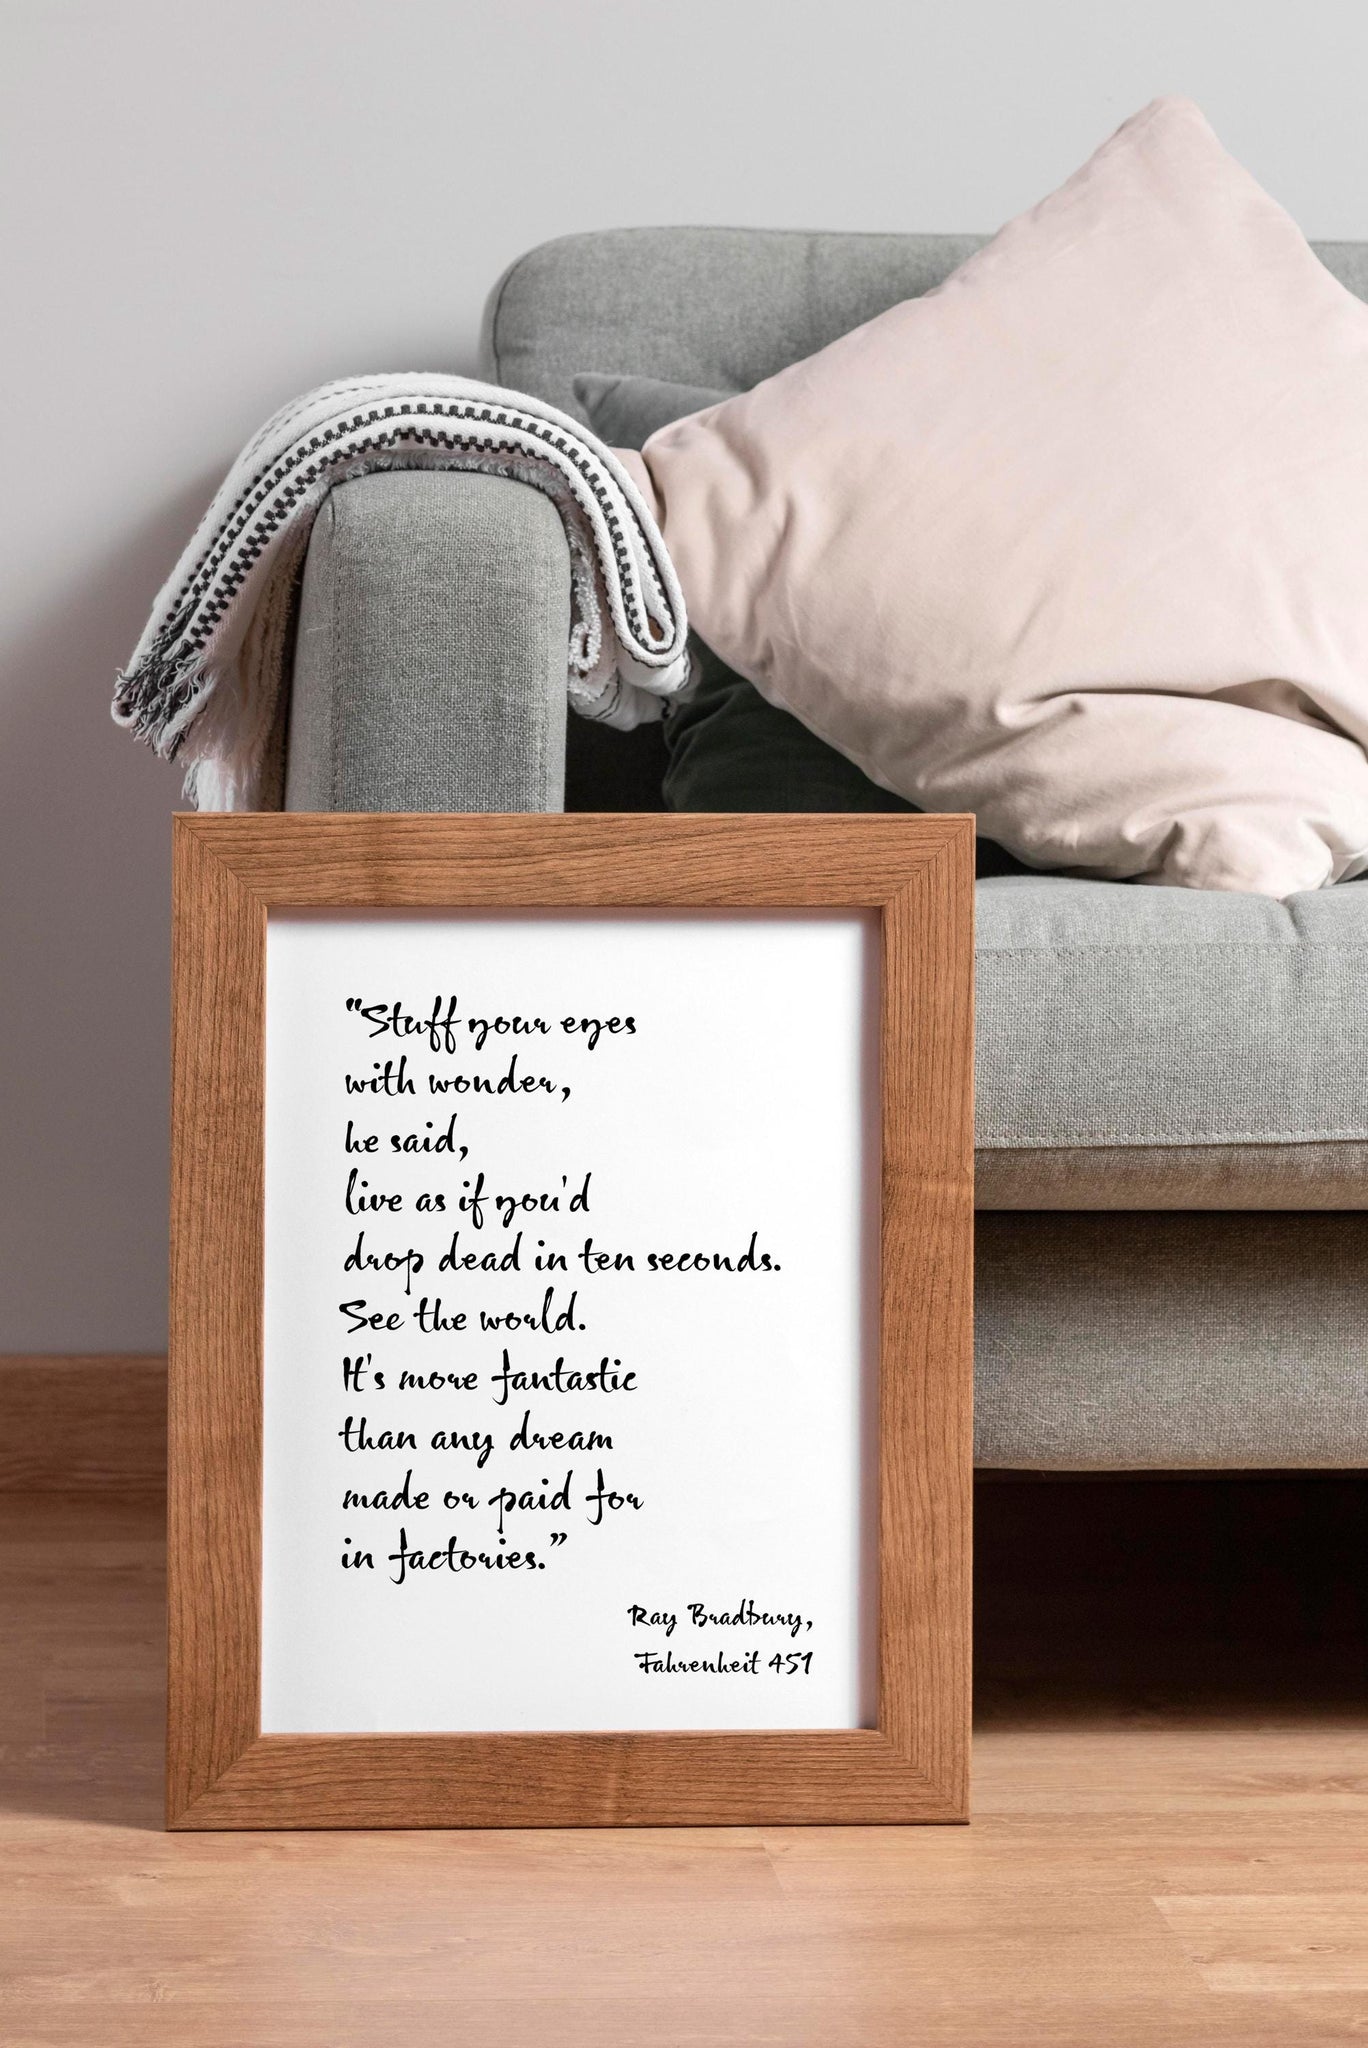 "Stuff your eyes
with wonder,
he said,
live as if you'd
drop dead in ten seconds.
See the world.
It's more fantastic
than any dream
made or paid for
in factories.”
Ray Bradbury,
Fahrenheit 451